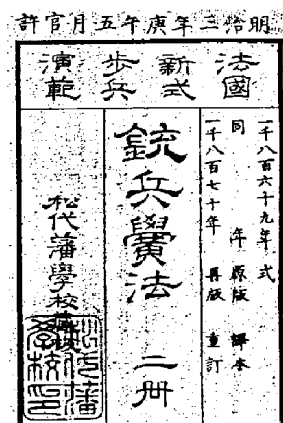 明治三年庚午五月官許
法國
新式
歩兵
演範
一千八百六十九年式
同年原版譯本
一千八百七十年再版重訂
銃兵學黌法 二冊
松代藩學校蔵
松代藩學校印